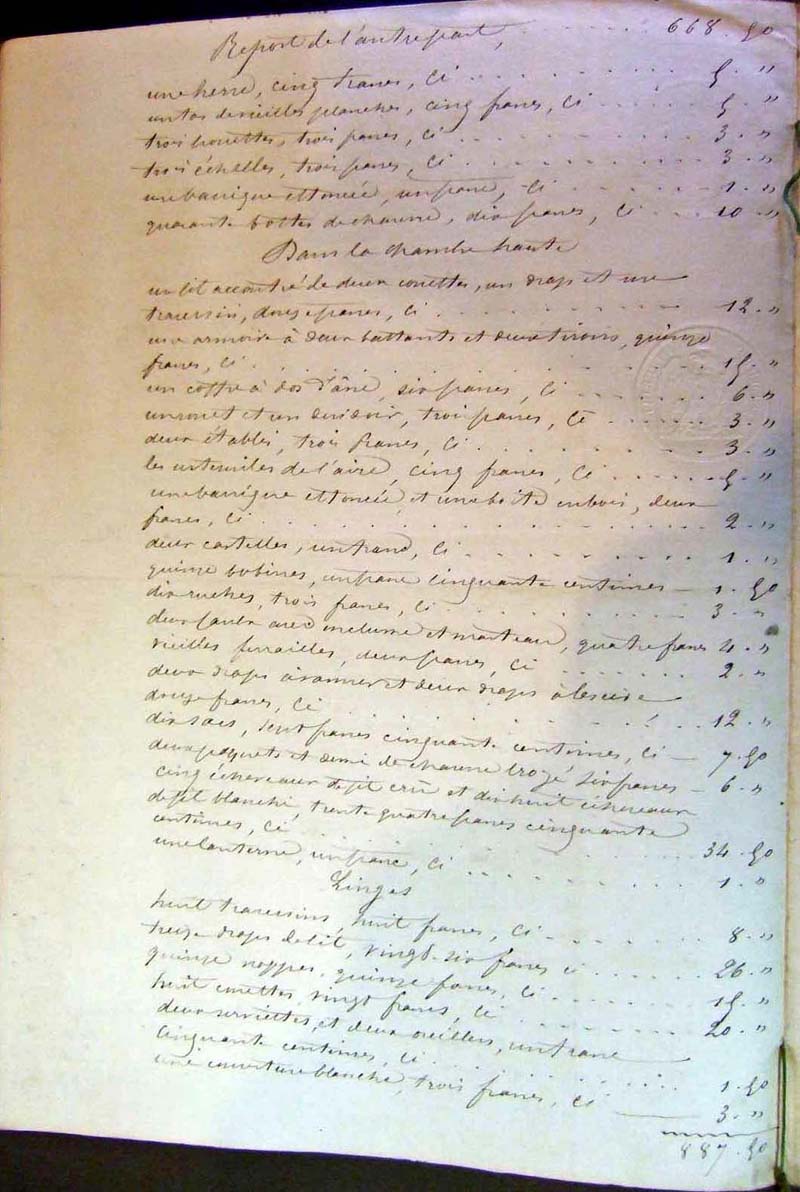 Report de l'autre part, 668. 50
une herse, cinq francs, ci 5. "
un tas de vieilles planches, cinq francs, ci 5. "
trois houettes, trois francs, ci 3. "
trois échelles, trois francs, ci 3. "
une barrique et foncée, un franc, ci 1. "
quarante bottes de chaume, dix francs, ci 10. "
Dans la chambre haute
un lit accoutré de deux couettes, un drap et une
traversin, douze francs, ci 12. "
une armoire à deux battants et deux tirons, quinze
francs, ci 15. "
un coffre à dos d'âne, six francs, ci 6. "
un rouet et un dévidoir, trois francs, ci 3. "
deux établis, trois francs, ci 3. "
les ustensiles de l'aire, cinq francs, ci 5. "
une barrique et foncée et une boite en bois, deux
francs, ci 2. "
deux castelles, un franc, ci 1. "
quinze bobines, un franc cinquante centimes 1. 50
dix ruches, trois francs, ci 3. "
deux faulx avec enclume et marteau, quatre francs 4. "
vieilles ferrailles, deux francs, ci 2. "
deux draps à vanner et deux draps à lessive
douze francs, ci 12. "
dix sacs, sept francs cinquante centimes, ci 7. 50
deux paquets et demi de chanvre broyé six francs 6. "
cinq écheveaux de fil crû et dix huit écheveaux
de fil blanchi, trente quatre francs cinquante
centimes, ci 34. 50
une lanterne, un franc, ci 1. "
Linges
huit traversins, huit francs, ci 8. "
treize draps de lit, vingt-six francs ci 26. "
quinze nappes, quinze francs, ci 15. "
huit couettes, vingt francs, ci 20. "
deux serviettes, et deux oreillers, un franc
cinquante centimes, ci 1. 50
une couverture blanche, trois francs, ci 3. "
887. 50